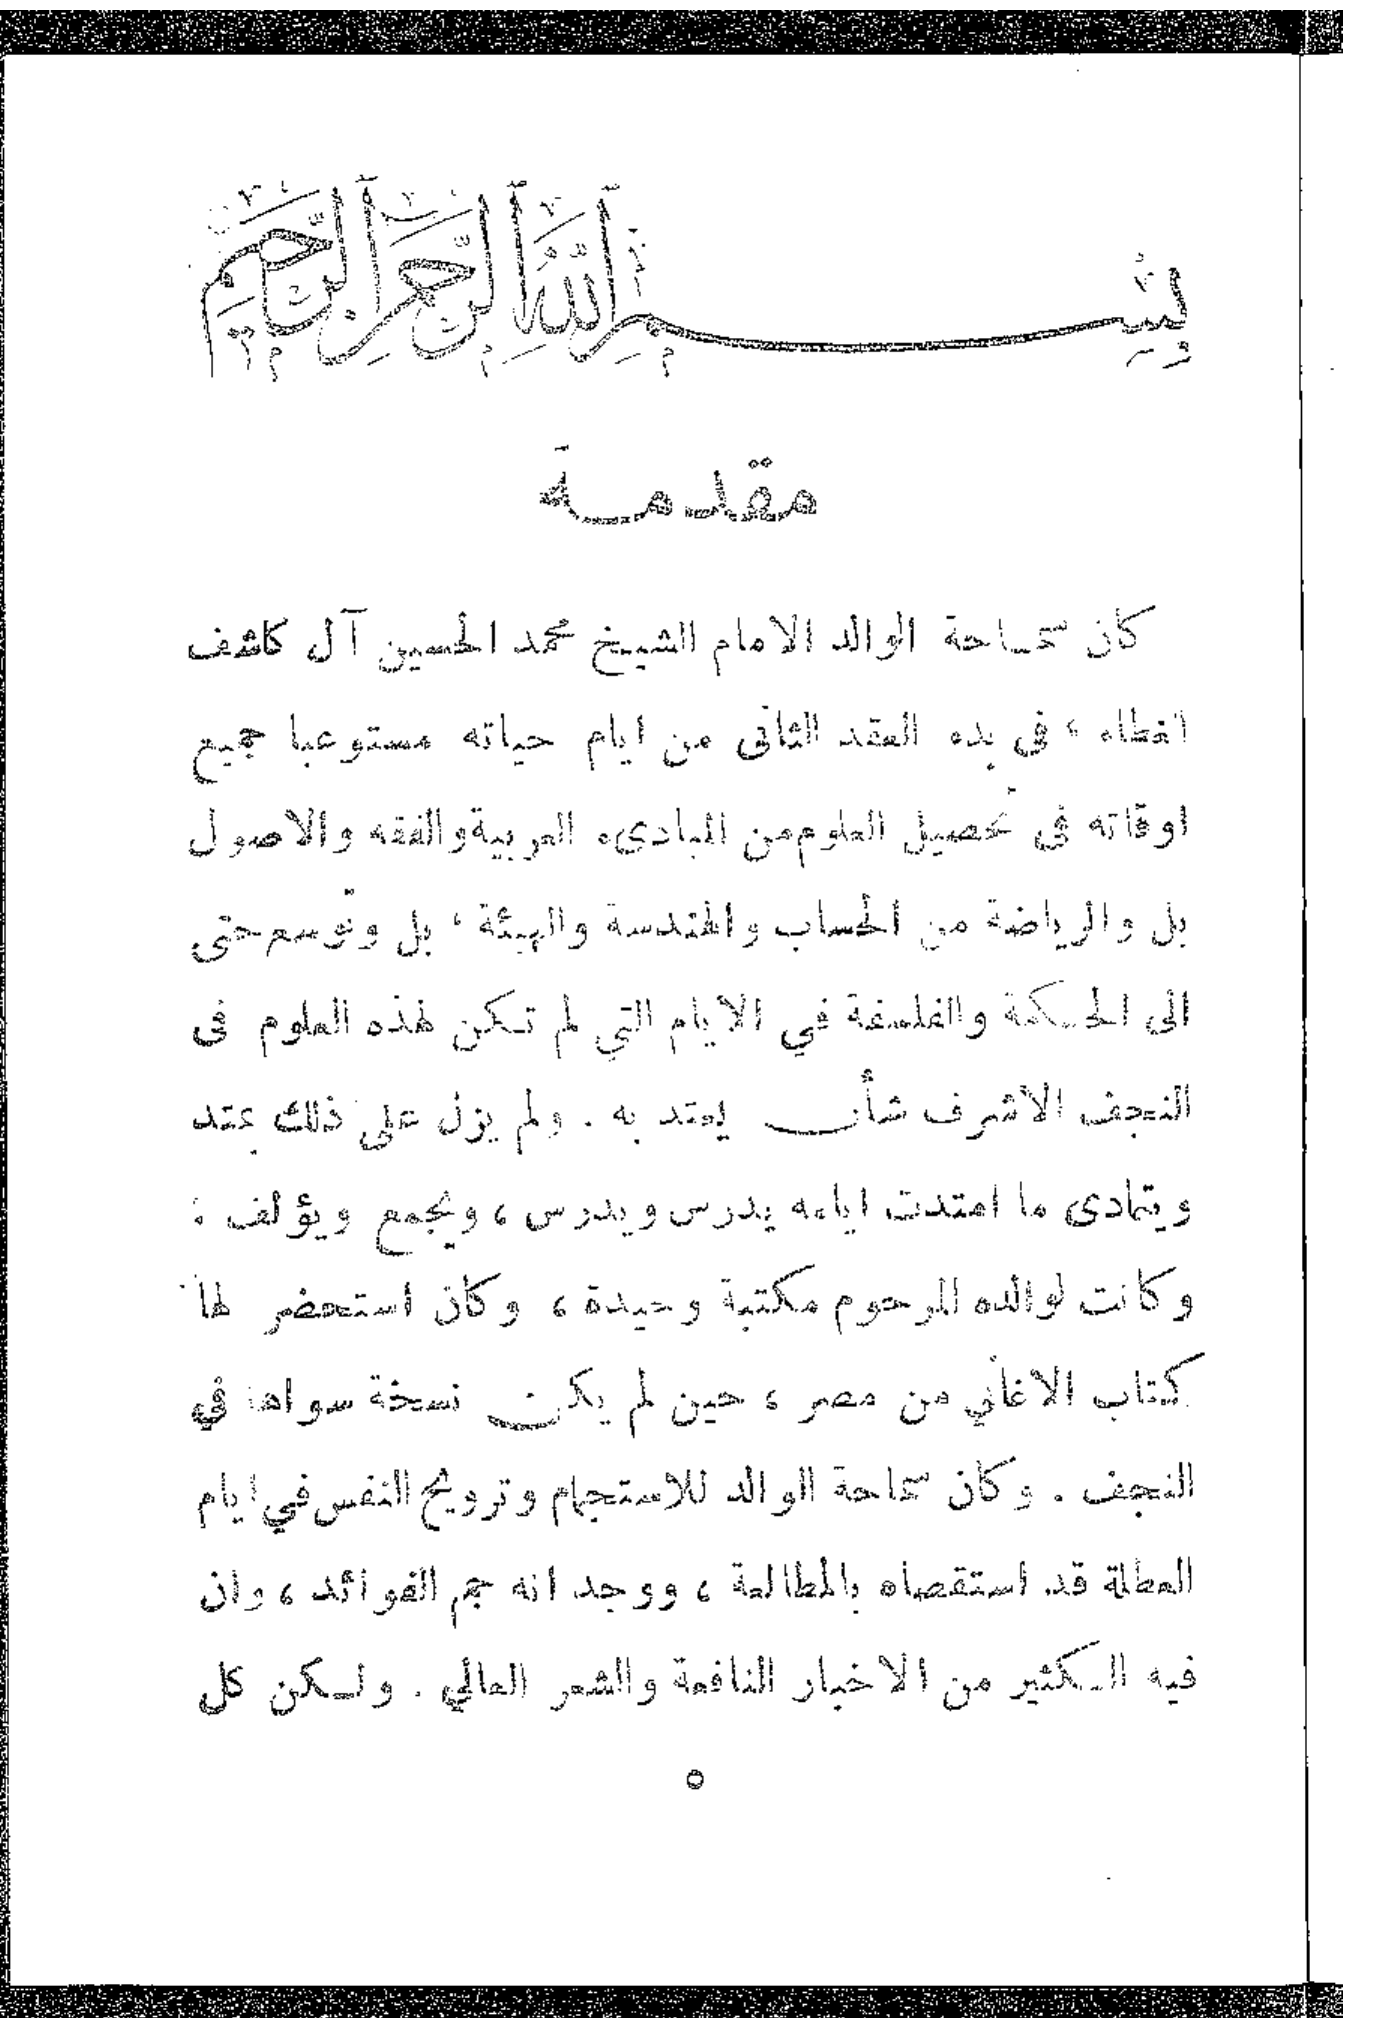 بسم الله الرحمن الرحيم
مقدمة
كان سماحة الوالد الامام الشيخ محمد الحسين آل كاشف
الغطاء ، في بدء العقد الثاني من ايام حياته مستوعبا جميع
اوقاته في تحصيل العلوم من المبادىء العربية والفقه والاصول
بل والرياضة من الحساب والهندسة والهيئة ، بل وتوسع حتى
الى الحكمة والفلسفة في الايام التي لم تكن لهذه العلوم في
النجف الاشرف شأن يعتد به . ولم يزل على ذلك يمتد
ويتمادى ما امتدت ايامه يدرس ويدرس ، ويجمع ويؤلف :
وكانت لوالده المرحوم مكتبة وحيدة ، وكان استحضر لها
كتاب الاغاني من مصر ، حين لم يكن نسخة سواها في
النجف . وكان سماحة الوالد للاستجمام وترويح النفس في ايام
العطلة قد استقصاه بالمطالعة ، ووجد انه جم الفوائد ، وان
فيه الكثير من الاخبار النافعة والشعر العالي . ولكن كل
٥